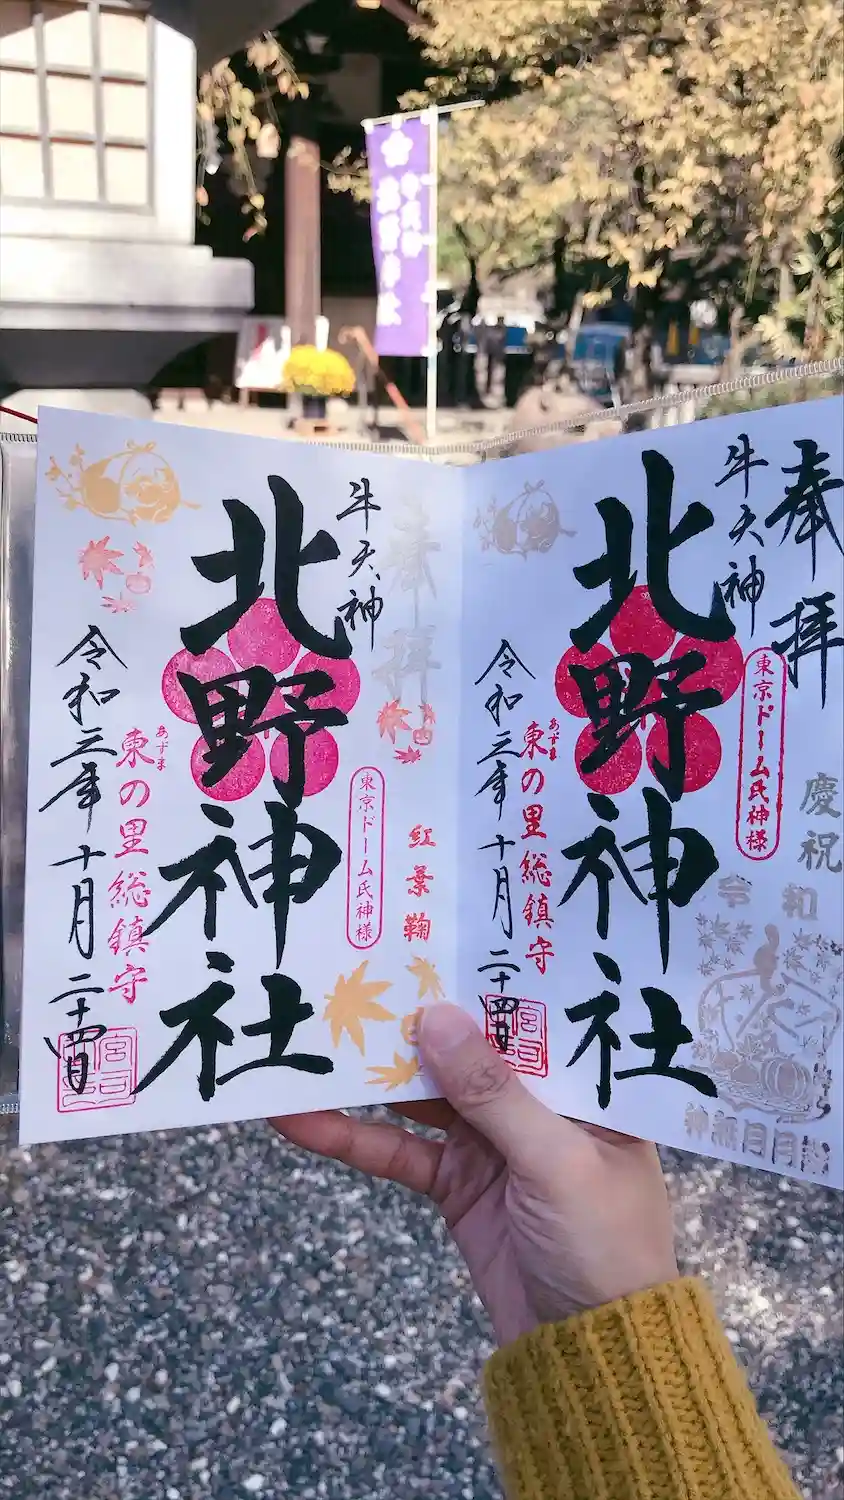 奉拝
牛天神
東京ドーム氏神様
北野神社
東の里総鎮守
あずま
令和三年十月二十四日
慶祝
令和
神無月
奉拝
牛天神
紅葉鞠
東京ドーム氏神様
北野神社
東の里総鎮守
あずま
令和三年十月二十四日